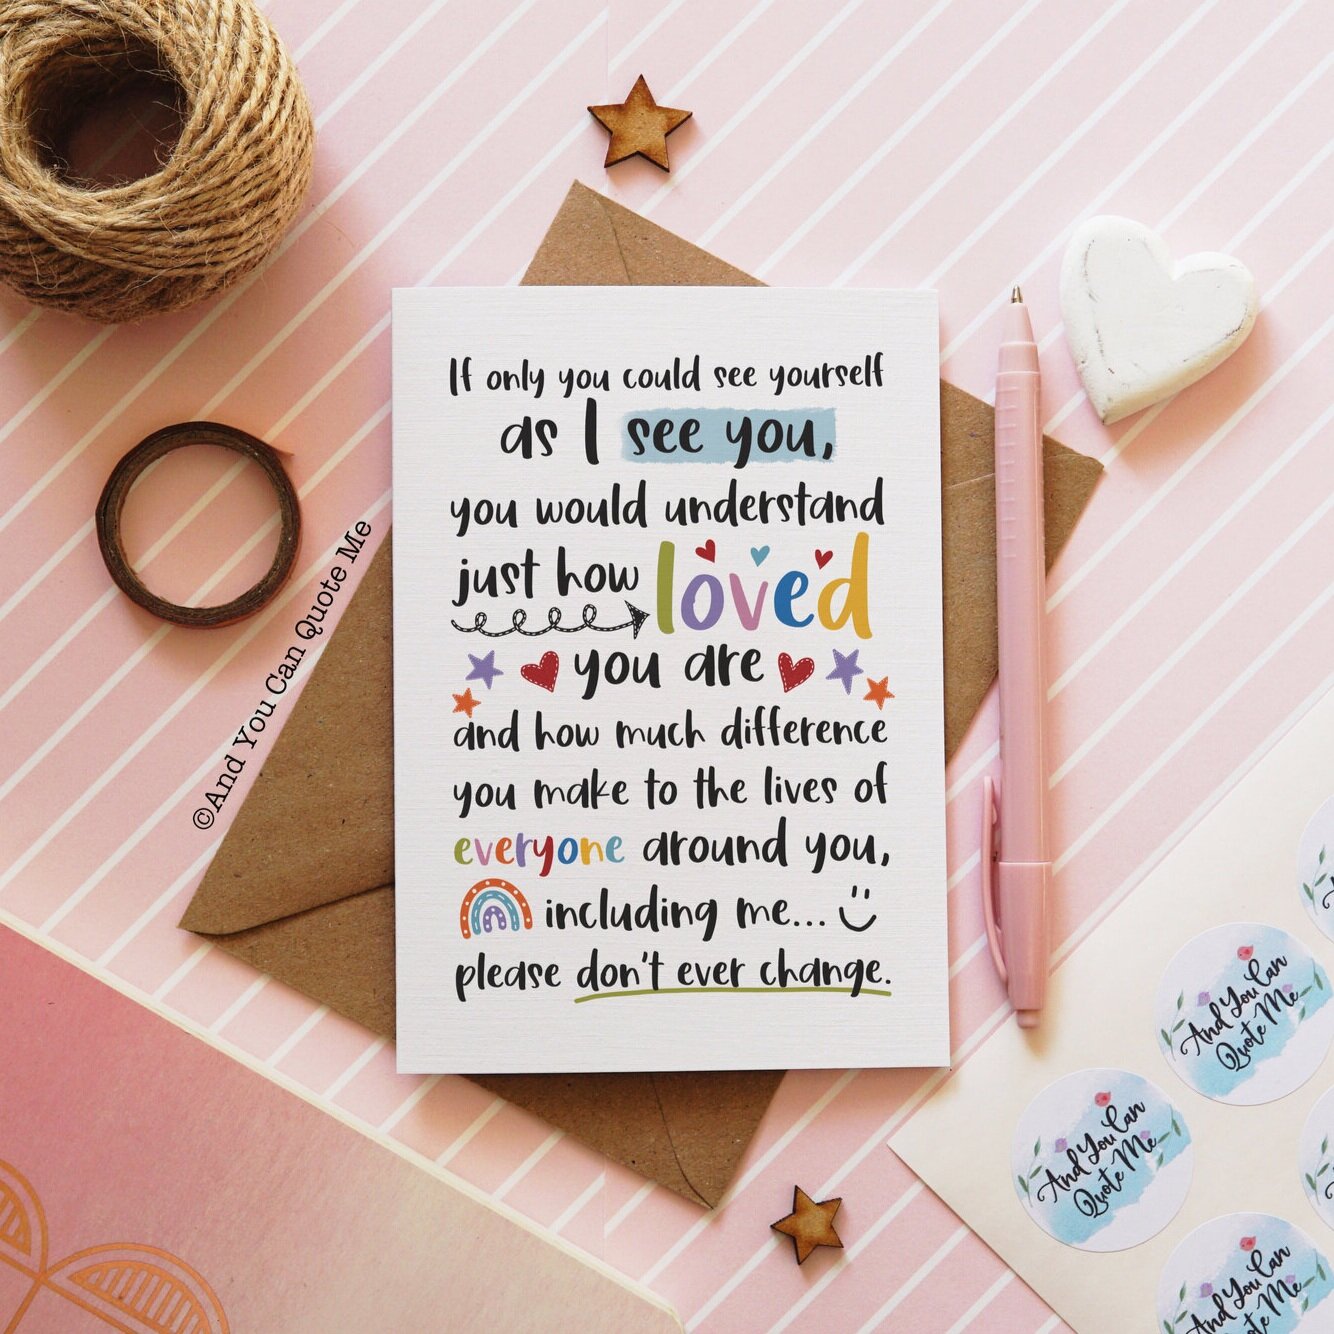 If only you could see yourself
as I see you,
you would understand
just how loved
you are
and how much difference
you make to the lives of
everyone around you,
including me...
please don't ever change.
©And You Can Quote Me
And You Can
Quote Me
And You Can
Quote Me
And You Can
Quote Me